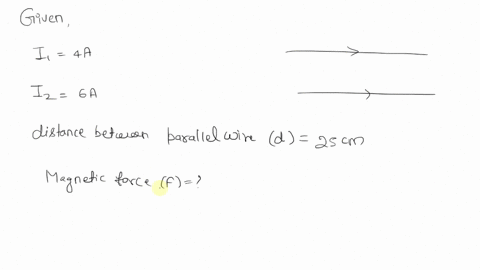 Given,
I₁ = 4A
I₂ = 6A
distance between parallel wire (d) = 25 cm
Magnetic force (F) = ?